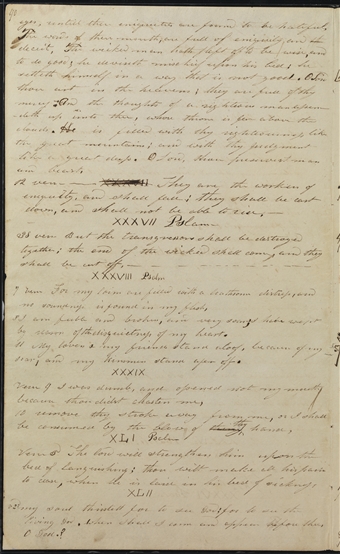 eyes, until their iniquities are found to be hateful.
The words of their mouth, are full of iniquity and
deceit. The wicked man hath left off to be wise, and
to do good; he deviseth mischief upon his bed; he
setteth himself in a way that is not good. O
thou art in the heavens; they are full of thy
mercy. And the thoughts of a righteous man
unto thee, whose throne is far above the
clouds. He is filled with thy righteousness like
the great mountains; and with thy judgment
like a great deep. O preservest man
and beast.
12 verse — They are the workers of
iniquity, and shall fall; they shall be cast
down, and shall not be able to rise. —
XXXVII Psalm
38 verse But the transgressors shall be destroyed
together; the end of the wicked shall come, and they
shall be cut off. —
XXXVIII Psalm
7 verse For my loins are filled with a loathsome disease; and
no soundness is found in my flesh,
8 I am feeble and broken, and very sore; I have wept
by reason of the disquieting of my heart.
11 My lovers & my friends stand aloof, because of my
sore; and my kinsmen stand afar off.
XXXIX
Verse 9 I was dumb, and opened not my mouth;
because thou didst chasten me,
10 remove thy stroke away from me, or I shall
be consumed by the blow of thy hand.
XLI Psalm
Verse 3 The Lord will strengthen him upon the
bed of languishing: thou wilt make all his pain
to cease, when he is laid in his bed of sickness
XLII
2 my soul thirsteth for to see God; for to see the
living God. When shall I come and appear before thee
O God?